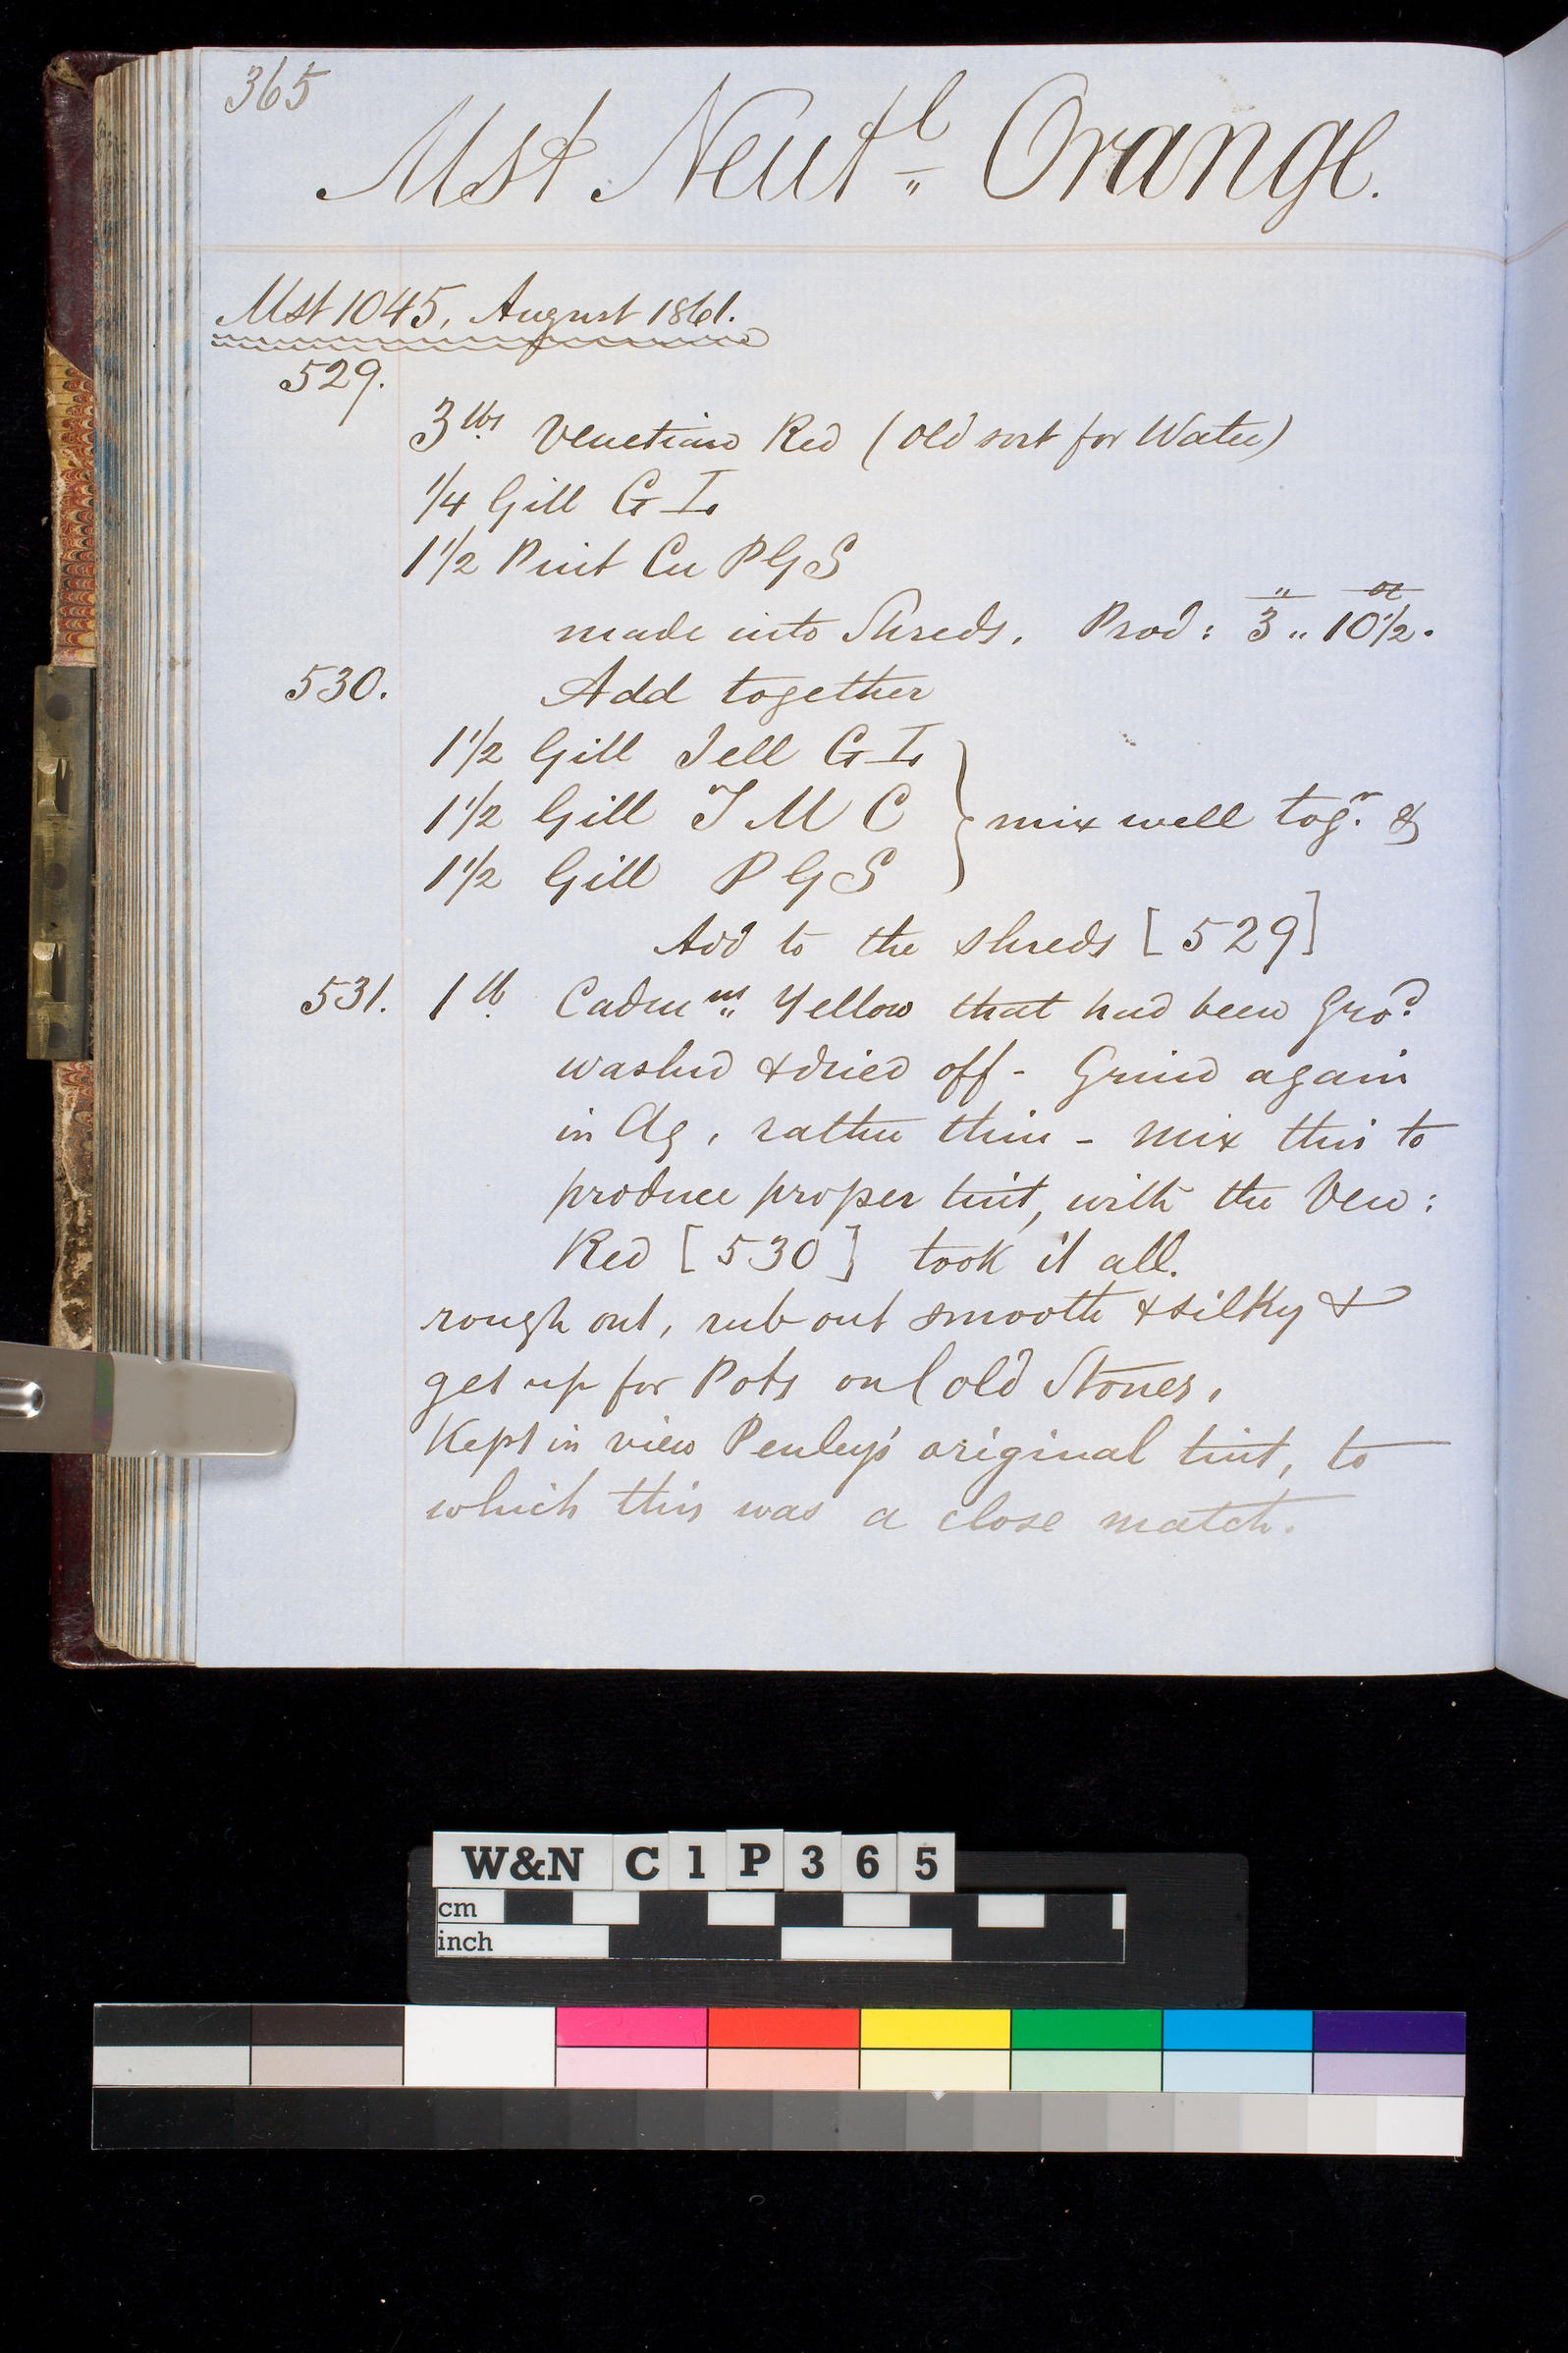 365
Mst Neutl Orange.
Mst 1045, August 1861.
529.
3 lbs Venetian Red (old sort for Water)
1/4 Gill G I.
1 1/2 Pint Cu P G S
made into Shreds. Prod: 3 .. 10 1/2.
530. Add together
1 1/2 Gill Jell G I.
1 1/2 Gill T M C } mix well togr. &
1 1/2 Gill P G S
Add to the shreds [529]
531. 1 lb Cadmm Yellow that had been Grod.
washed & dried off - Grind again
in Aq, rather thin - mix this to
produce proper tint, with the Ven:
Red [530] took it all.
rough out, rub out smooth & silky &
get up for Pots on Cold Stones.
Kept in view Penley's original tint, to
which this was a close match.
W&N C1P365
cm
inch